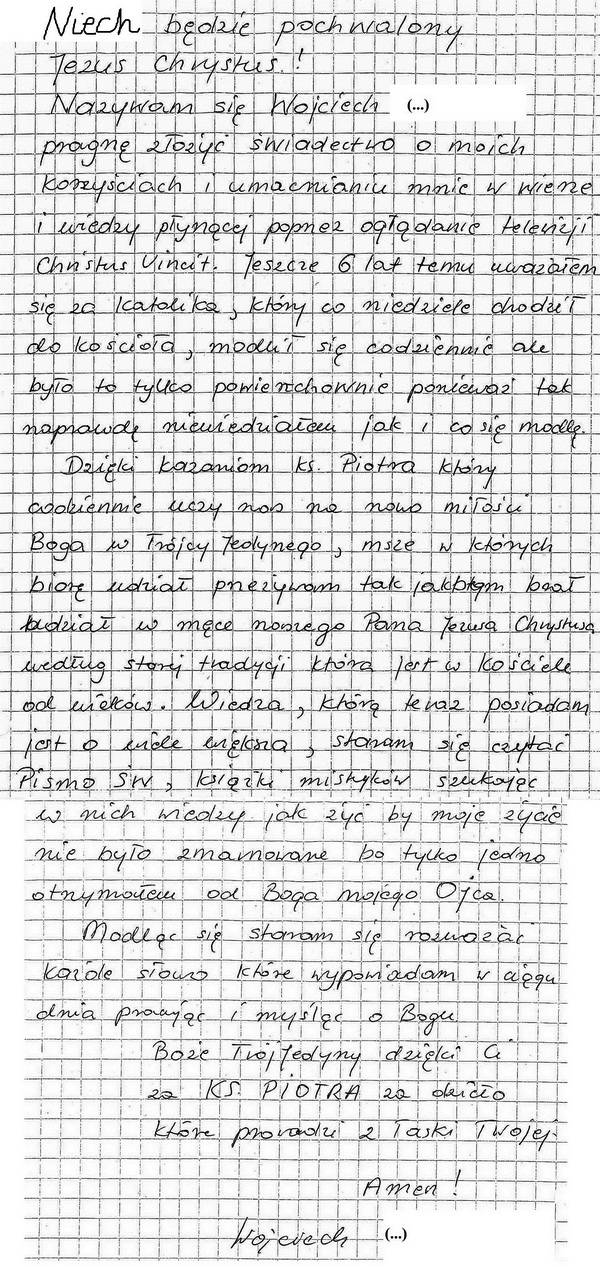 Niech będzie pochwalony
Jezus Chrystus.!
Nazywam się Wojciech (...)
pragnę złożyć świadectwo o moich
korzyściach i umacnianiu mnie w wierze
i wiedzy płynącej poprzez oglądanie telewizji
Christus Vincit. Jeszcze 6 lat temu uważałem
się za katolika, który co niedziele chodził
do kościoła, modlił się codziennie ale
było to tylko powierzchownie ponieważ tak
naprawdę niewiedziałem jak i co się modlę.
Dzięki kazaniom ks. Piotra który
codziennie uczy nas na nowo miłości
Boga w Trójcy Jedynego, msze w których
biorę udział przeżywam tak jakbym brał
udział w męce naszego Pana Jezusa Chrystusa
według starej tradycji która jest w kościele
od wieków. Wiedza, którą teraz posiadam
jest o wiele większa, staram się czytać
Pismo Św, książki mistyków szukając
w nich wiedzy jak żyć by moje życie
nie było zmarnowane bo tylko jedno
otrzymałem od Boga mojego Ojca.
Modląc się staram się rozważać
każde słowo które wypowiadam w ciągu
dnia pracując i myśląc o Bogu
Boże Trójjedyny dzięki Ci
za KS. PIOTRA za dzieło
które prowadzi z Łaski Twojej.
Amen!
Wojciech (...)